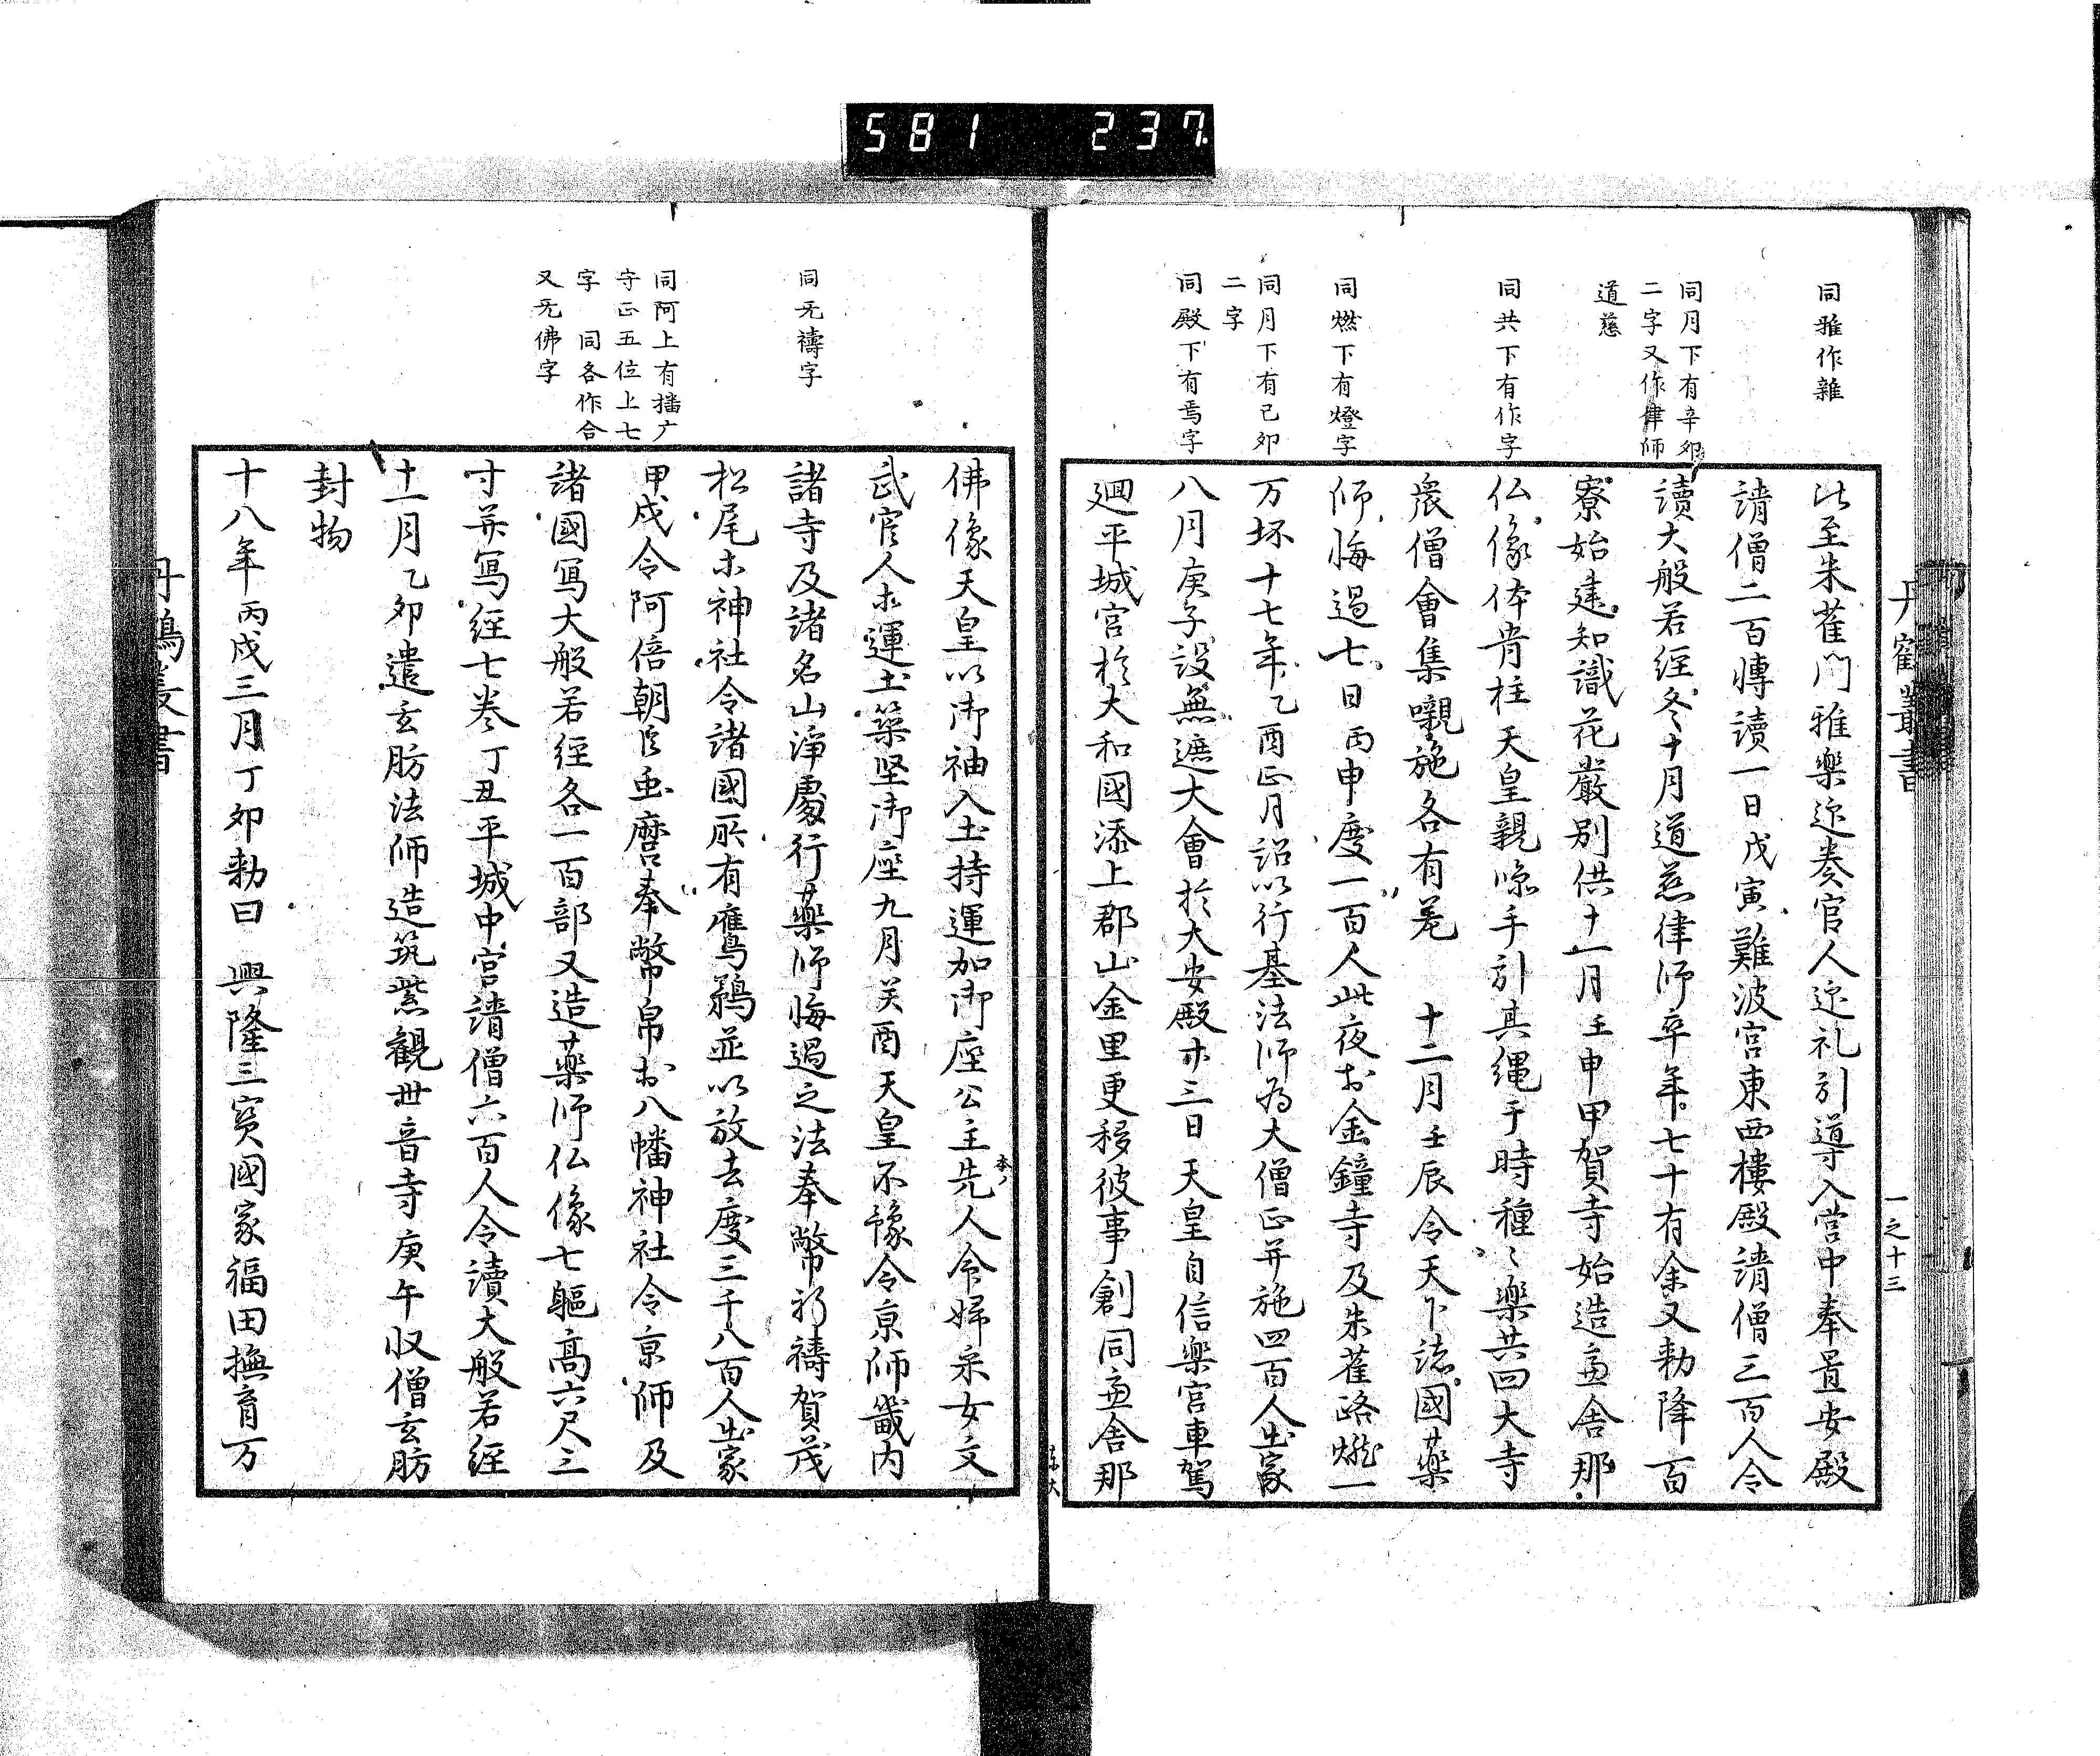 581 237
丹鶴叢書
一之十三
同雅作雜
同月下有辛卯
二字又作律師
道慈
同共下有作字
同燃下有燈字
同月下有己卯
二字
同殿下有焉字
比至朱雀門雅樂迎奏官人迎礼引導入宮中奉置安殿
請僧二百轉讀一日戊寅難波宮東西樓殿請僧三百人令
讀大般若經冬十月道慈律師卒年七十有余又勅降百
寮始建知識花嚴別供十一月壬申甲賀寺始造盧舍那
仏像体骨柱天皇親臨手引其縄于時種〻樂共四大寺
衆僧會集䞋施各有差 十二月壬辰令天下諸國薬
師悔過七日丙申度一百人此夜於金鐘寺及朱雀路燃一
万坏十七年乙酉正月詔以行基法師為大僧正并施四百人出家
八月庚子設無遮大會於大安殿亦三日天皇自信樂宮車駕
廻平城宮於大和國添上郡山金里更移彼事創同盧舍那
同无禱字
同阿上有播广
守正五位上七
字 同各作合
又无佛字
佛像天皇以御袖入土持運加御座公主先人命婦采女文
武官人等運土築堅御座九月癸酉天皇不豫令京師畿内
諸寺及諸名山浄處行薬師悔過之法奉幣祈禱賀茂
松尾等神社令諸國所有鷹鵜並以放去度三千八百人出家
甲戌令阿倍朝臣虫麿奉幣帛於八幡神社令京師及
諸國冩大般若経各一百部又造薬師仏像七軀高六尺三
寸并冩経七巻丁丑平城中宮請僧六百人令讀大般若経
十一月乙卯遣玄肪法師造筑紫觀世音寺庚午収僧玄肪
封物
十八年丙戌三月丁卯勅曰 興隆三寳國家福田撫育万